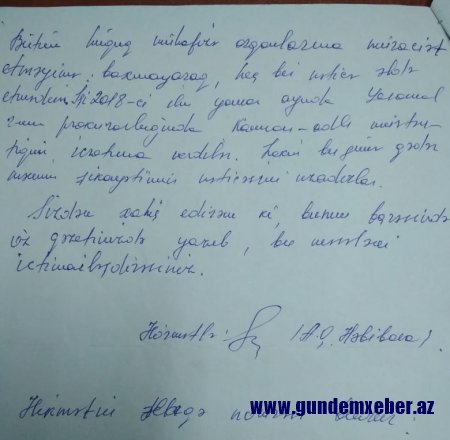 Bütün hüquq mühafizə orqanlarına müraciət
etməyimə baxmayaraq, heç bir nəticə əldə
etmədim. 2018-ci ilin yanvar ayında Yasamal
r-nun prokurorluğunda Kamran adlı müstən-
tiqin icrasına verdilər. Lakin bu günə qədər
mənim şikayətimin nəticəsini uzadırlar.
Sizdən xahiş edirəm ki, bunun barəsində
öz qəzetinizdə yazıb, bu məsələni
ictimailəşdirəsiniz.
Hörmətlə: (A.Q. Həbibova)
Hörmətlə
www.gundemxeber.az